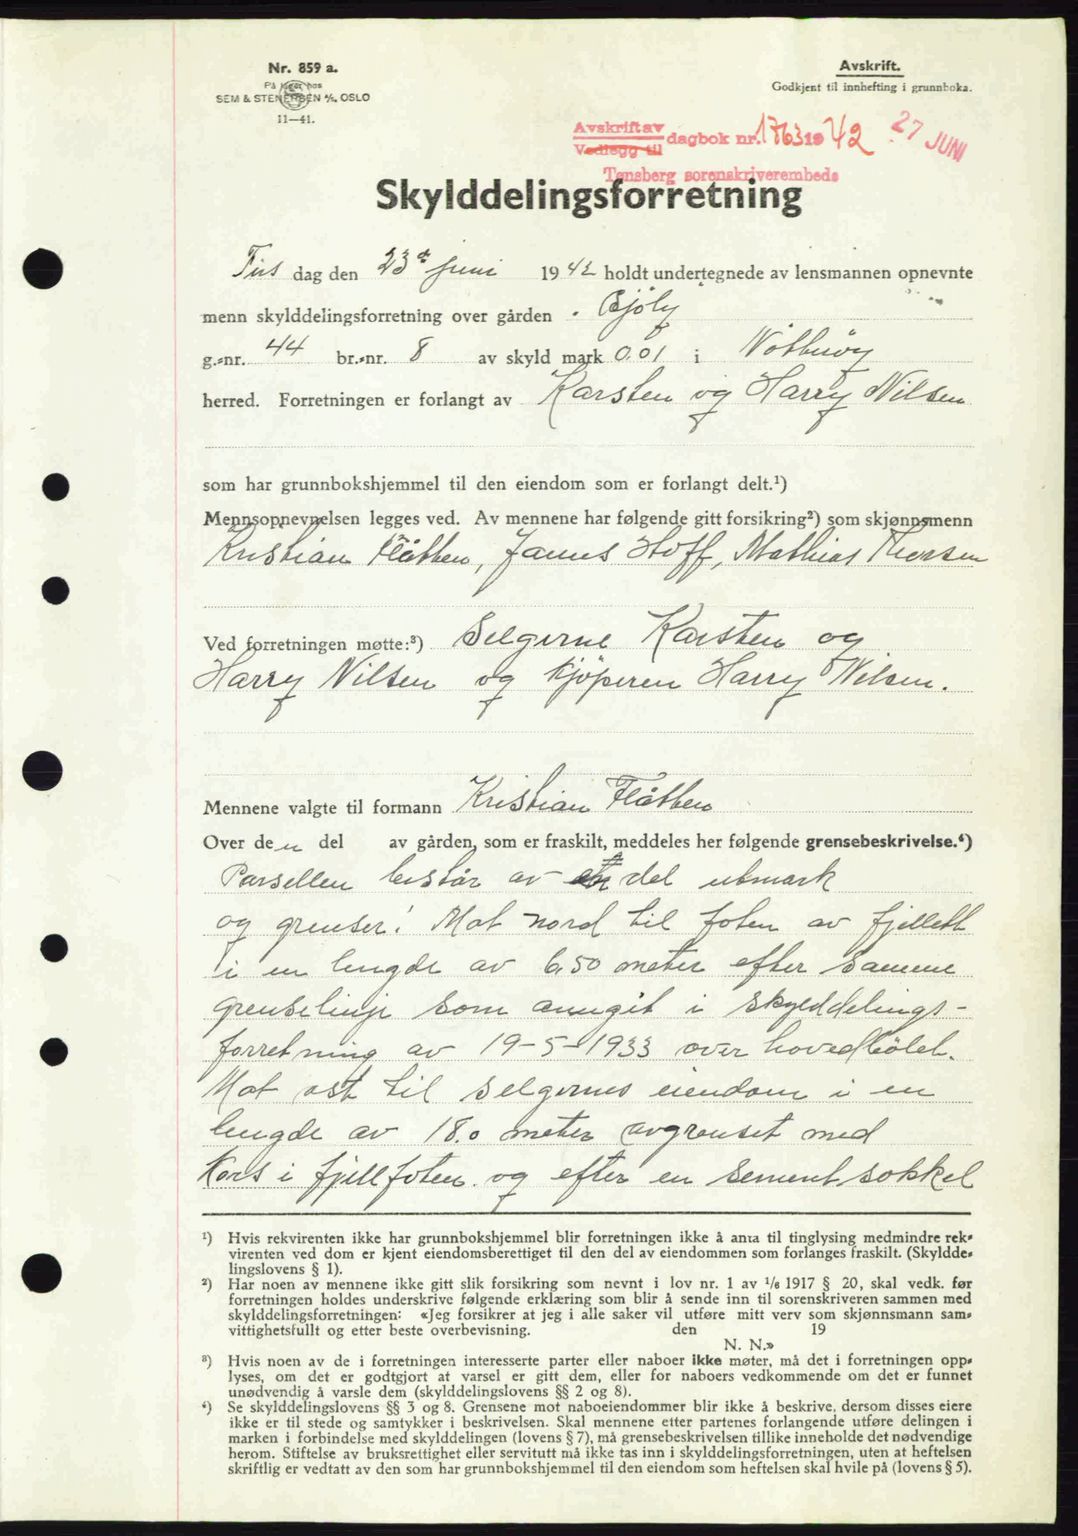 Nr. 859 a.
På lager hos
SEM & STENERSEN A/S. OSLO
11—41.
Avskrift.
Godkjent til innhefting i grunnboka.
Avskrift av
Vedlegg til
dagbok nr. 1763 1942 27 JUNI
Tønsberg sorenskriverembede
Skylddelingsforretning
Tirs dag den 23de juni 1942 holdt undertegnede av lensmannen opnevnte
menn skylddelingsforretning over gården
g.-nr. 44 br.-nr. 8 av skyld mark 0.01 i Nøtterøy
herred. Forretningen er forlangt av Karsten og Harry Nilsen
som har grunnbokshjemmel til den eiendom som er forlangt delt.¹)
Mennsopnevnelsen legges ved. Av mennene har følgende gitt forsikring²) som skjønnsmenn
Kristian Flåtten, Hoff, Mathias Thorsen
Ved forretningen møtte:³) Selgerne Karsten og
Harry Nilsen og kjøperen Harry Nilsen.
Mennene valgte til formann Kristian Flåtten
Over de n del av gården, som er fraskilt, meddeles her følgende grensebeskrivelse.⁴)
Parsellen består av del utmark
og grenser: Mot nord til foten av fjellett
i en lengde av 6,50 meter efter samme
grenselinje som anngit i skylddelings-
forretning av 19-5-1933 over hovedbølet.
Mot øst til selgernes eiendom i en
lengde av 18.0 meter avgrenset med
Kors i fjellfoten og efter en sementsokkel
¹) Hvis rekvirenten ikke har grunnbokshjemmel blir forretningen ikke å anta til tinglysing medmindre rek-
virenten ved dom er kjent eiendomsberettiget til den del av eiendommen som forlanges fraskilt. (Skyldde-
lingslovens § 1).
²) Har noen av mennene ikke gitt slik forsikring som nevnt i lov nr. 1 av ¹/₆ 1917 § 20, skal vedk. før
forretningen holdes underskrive følgende erklæring som blir å sende inn til sorenskriveren sammen med
skylddelingsforretningen: «Jeg forsikrer at jeg i alle saker vil utføre mitt verv som skjønnsmann sam-
vittighetsfullt og etter beste overbevisning. den 19
N. N.»
³) Hvis noen av de i forretningen interesserte parter eller naboer ikke møter, må det i forretningen opp-
lyses, om det er godtgjort at varsel er gitt dem, eller for naboers vedkommende om det er funnet
unødvendig å varsle dem (skylddelingslovens §§ 2 og 8).
⁴) Se skylddelingslovens §§ 3 og 8. Grensene mot naboeiendommer blir ikke å beskrive, dersom disses eiere
ikke er til stede og samtykker i beskrivelsen. Skal mennene etter partenes forlangende utføre delingen i
marken i forbindelse med skylddelingen (lovens § 7), må grensebeskrivelsen tillike inneholde det nødvendige
herom. Stiftelse av bruksrettighet eller servitutt må ikke tas inn i skylddelingsforretningen, uten at heftelsen
skriftlig er vedtatt av den som har grunnbokshjemmel til den eiendom som heftelsen skal hvile på (lovens § 5).